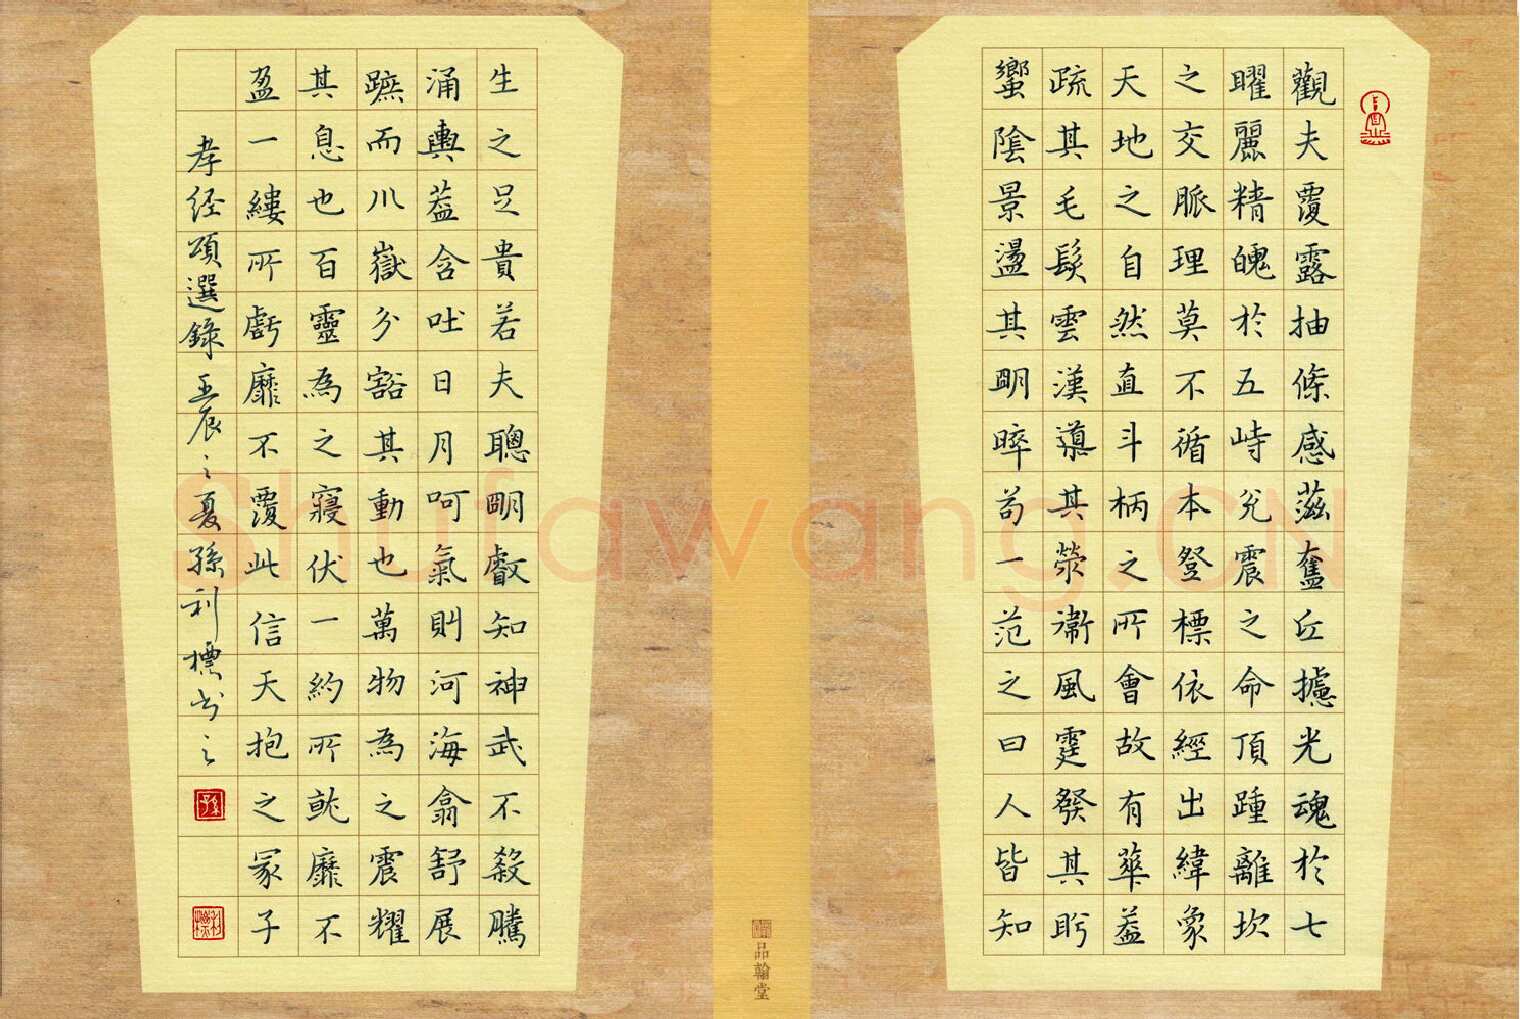 觀夫覆露抽條感茲奮丘攄光魂於七
曜麗精魄於五峙兌震之命頂踵離坎
之交脈理莫不循本發標依經出緯象
天地之自然直斗柄之所會故有華蓋
疏其毛髮雲漢導其滎衞風霆發其盻
蠁陰景盪其明晬苟一范之曰人皆知
生之足貴若夫聰明叡知神武不殺騰
涌輿蓋含吐日月呵氣則河海翕舒展
蹠而川嶽分豁其動也萬物為之震耀
其息也百靈為之寢伏一約所虧靡不
盈一縷所虧靡不覆此信天抱之冢子
孝经頌選錄 壬辰之夏孫利標书之
品翰堂
Shufawang.CN